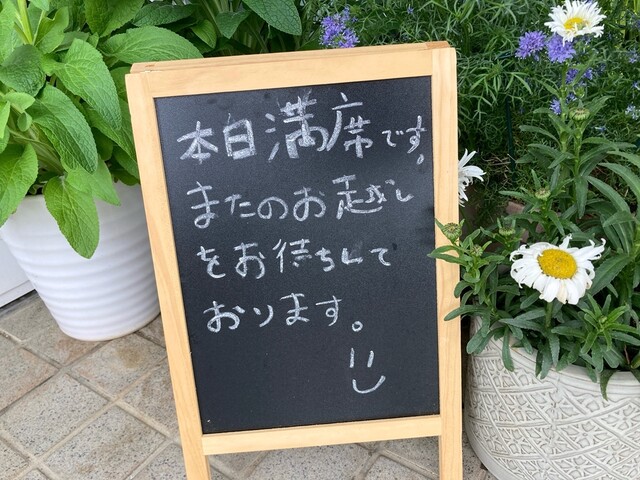 本日満席です。
またのお越し
をお待ちして
おります。